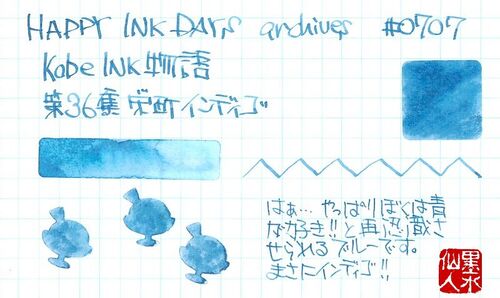 HAPPY INK DAYS archives #0707
Kobe INK物語
第36集 栄町インディゴ
はぁ… やっぱりぼくは青
が好き!! と再認識さ
せられるブルーです。
まさにインディゴ!!
墨水
仙人